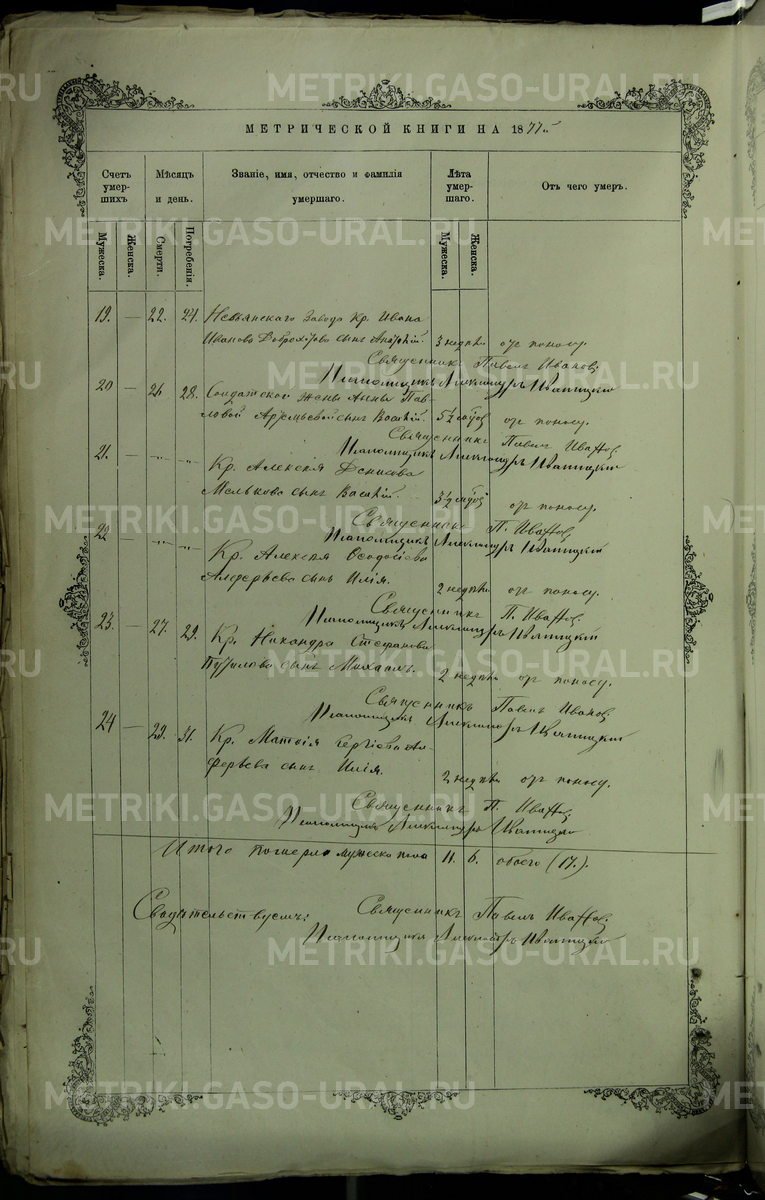 METRIKI.GASO-URAL.RU
МЕТРИЧЕСКОЙ КНИГИ НА 1877й
Счетъ умершихъ
Мѣсяцъ и день.
Званіе, имя, отчество и фамилія умершаго.
Лѣта умершаго.
Отъ чего умеръ.
Мужеска.
Женска.
Смерти.
Погребенія.
Мужеска.
Женска.
19. — 22. 24. Невьянскаго Завода Кр. Ивана
Иванова сынъ 3 недѣли отъ поносу.
Священникъ Павелъ Ивановъ
Псаломщикъ Александръ
20 — 26 28. Солдатской жены Анны Пав-
ловой Артемьевой сынъ Василій. 5½ отъ поносу.
Священникъ Павелъ Ивановъ
Псаломщикъ Александръ
21. — Кр. Алексѣя Денисова
Мелькова сынъ Василій. 3½ отъ поносу.
Священникъ П. Ивановъ
Псаломщикъ Александръ
22 — Кр. Алексѣя Ѳеодосіева
Алферьева сынъ Илія. 2 недѣли отъ поносу.
Священникъ П. Ивановъ
Псаломщикъ Александръ
23. — 27. 29. Кр. Никандра Стефанова
сынъ Михаилъ. 2 недѣли отъ поносу.
Священникъ Павелъ Ивановъ
Псаломщикъ Александръ
24 — 29. 31. Кр. Матвія Сергіева Ал-
ферьева сынъ Илія. 2 недѣли отъ поносу.
Священникъ П. Ивановъ
Псаломщикъ Александръ
Итого померло мужеска пола 11. 6. обоего (17.).
Свидѣтельствуемъ: Священникъ Павелъ Ивановъ
Псаломщикъ Александръ